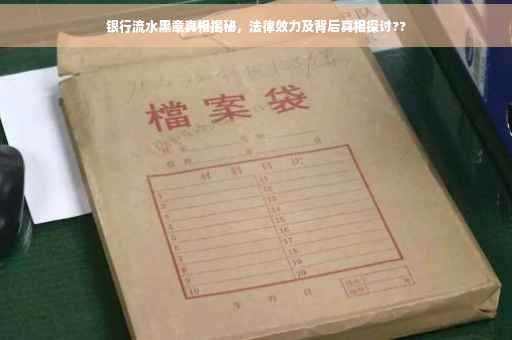 银行流水黑章真相揭秘，法律效力及背后真相探讨??
檔案袋
材料目次
1 11
2 12
3 13
4 14
5 15
6 16
7 17
8 18
9 19
10 20
年 月 日